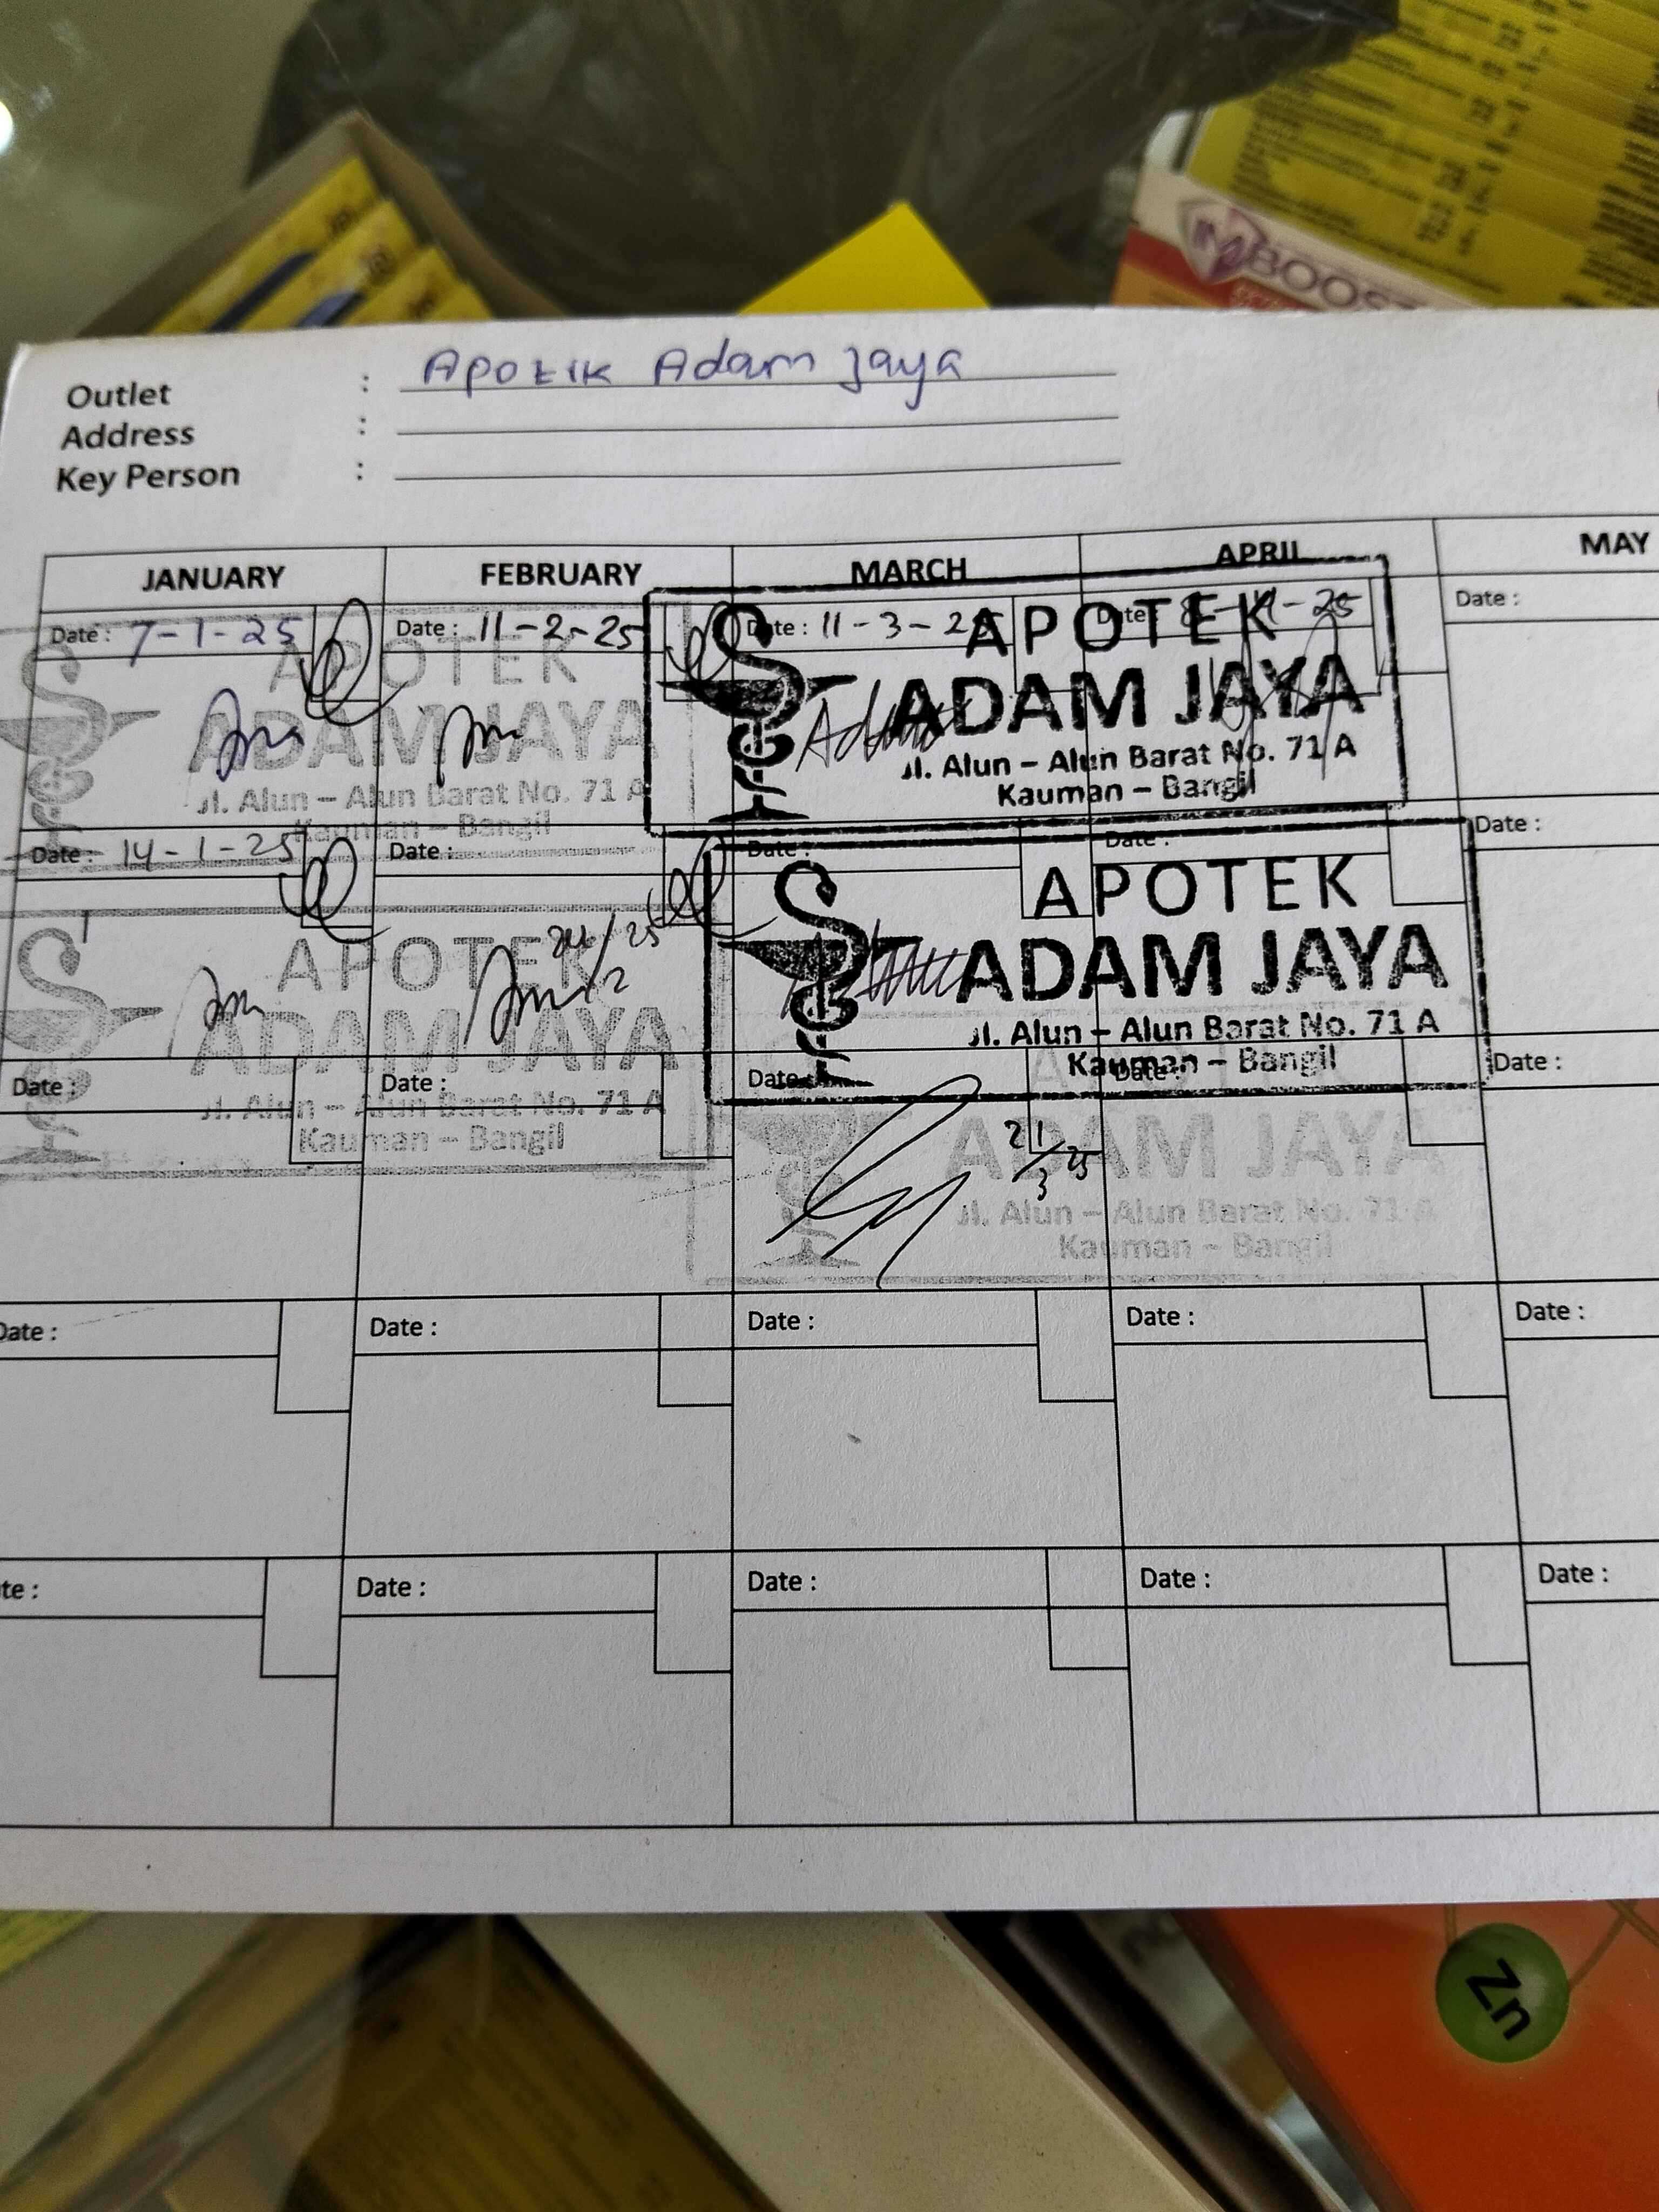 IMBOOST
Outlet : Apotik Adam Jaya
Address :
Key Person :
JANUARY FEBRUARY MARCH APRIL MAY
Date : 7-1-25 Date : 11-2-25 Date : 11-3-25 Date : -25 Date :
APOTEK APOTEK
ADAM JAYA ADAM JAYA
Jl. Alun - Alun Barat No. 71 A Jl. Alun - Alun Barat No. 71 A
Kauman - Bangil Kauman - Bangil
Date : 14-1-25 Date : Date : Date : Date :
24/2 25
APOTEK APOTEK
ADAM JAYA ADAM JAYA
Jl. Alun - Alun Barat No. 71 A Jl. Alun - Alun Barat No. 71 A
Kauman - Bangil Kauman - Bangil
Date : Date : Date : Date : Date :
21/3 25
ADAM JAYA
Jl. Alun - Alun Barat No. 71 A
Kauman - Bangil
Date : Date : Date : Date : Date :
te : Date : Date : Date : Date :
Zn